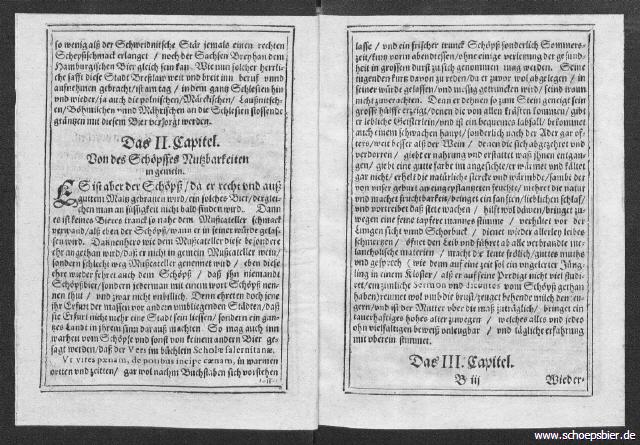 so wenig alß der Schweidnitsche Stär jemals einen rechten
Schepßschmack erlanget / noch der Sachsen Breyhan dem
Hamburgischen Bier gleich sein kan. Wie nun solcher herrli-
che safft diese Stadt Breßlaw weit vnd breit inn beruf vnnd
aufnehmen gebracht / ist am tag / indem gantz Schlesien hin
vnd wieder / ja auch die polnischen / Märckischen / Laußnitsch-
en / Böhmischen vnd Mährischen an die Schlesien stossende
gräntzen mit diesem Bier versorgt werden.
Das II. Capitel.
Von des Schöpsses Nutzbarkeiten
in gemein.
ES ist aber der Schöpß / da er recht vnd auß
guttem Maltz gebrawen wird / ein solches Bier / dergleich-
en man an süssigkeit nicht bald finden wird. Dann
es ist keines Bieres tranck so nahe dem Muscateller schmack
verwand / als eben der Schöpß / wann er in seiner würde gelas-
sen wird. Dannenhero wie dem Mußcateller diese besondere
ehr angethan wird / daß er nicht in gemein Mußcateller wein /
sondern schlecht weg Mußcateller genennet wird / eben diese
ehre wieder fehret auch dem Schöpß / daß jhn niemandt
Schöpßbier / sondern jederman mit einem wort Schöpß nen-
nen thut / vnd zwar nicht vnbillich. Denn ehreten doch jene
jhr Erfurt der massen vor andern vmbliegenden Städten / daß
sie Erfurt nicht mehr eine Stadt sein liessen / sondern ein gan-
tzes Landt in jhrem sinn darauß machten. So mag auch inn
warheit vom Schöpße vnd sonst von keinem andern Bier ge-
sagt werden / daß der Vers im büchlein Scholæ salernitanæ.
Vt vites pœnam, de potibus incipe cœnam, in warmen
ortten vnd zeitten / gar wol nachm Buchstaben sich verstehen
lasse / vnd ein frischer trunck Schöpß sonderlich Sommers-
zeit / kurtz vorm abendtessen / ohne einige verletzung der gesund-
heit in grossem durst zu sich genommen mag werden. Seine
tugenden kurtz davon zu reden / da er zuvor wol abgelegen / in
seiner würde gelassen / vnd messig getruncken wird / seind kaum
nicht zuerachten. Denn er dehnen so zum Stein geneigt sein
grosse hülffe erzeigt / denen die von alten kräften kommen / gibt
er lebliche Geisterlein / vnd ist ein bequemes labsal / bekommet
auch einem schwachen haupt / sonderlich nach der Ader gar of-
ters / weit besser alß der Wein / denen die sich abgezehret vnd
verdorren / giebt er nahrung vnd erstattet waß jhnen entgan-
gen / giebt eine gutte farbe im angesichte / er wärmet vnd kühlet
gar nicht / erhelt die natürliche stercke vnd wärmbde / sambt der
von vnser geburt an eingepflantzten feuchte / mehret die natur
vnd machet fruchtbarkeit / bringet ein sanften / lieblichen schlaf /
vnd vortreibet daß stete wachen / hilft wol däwen / bringet zu-
wegen eine feine tapffere mannes stimme / verhütet vor der
Lungen sucht vnnd Schorbuck / dienet wieder allerley leibes
schmertzen / öfnet den Leib vnd führet ab alle verbrandte me-
lancholische materien / macht die leute frölich / guttes muths
vnd gesprech (wie denn auf eine zeit sol ein vngelerter Jüng-
ling in einem Kloster / alß er auf seine Predigt nicht viel studi-
ret / ein zimliche Sermon vnd vom Schöpß gethan
haben) reumet wol vmb die brust / zeuget behende milch den seu-
gern / vnd ist der Mutter vber die maß zuträglich / bringet ein
dauerhaftiges hohes alter zuwegen / welches alles vnd jedes
ohn vielfaltigen beweiß vnleugbar / vnd tägliche erfahrung
mit vberein stimmet.
Das III. Capitel.
B iij
Wieder-
www.schoepsbier.de